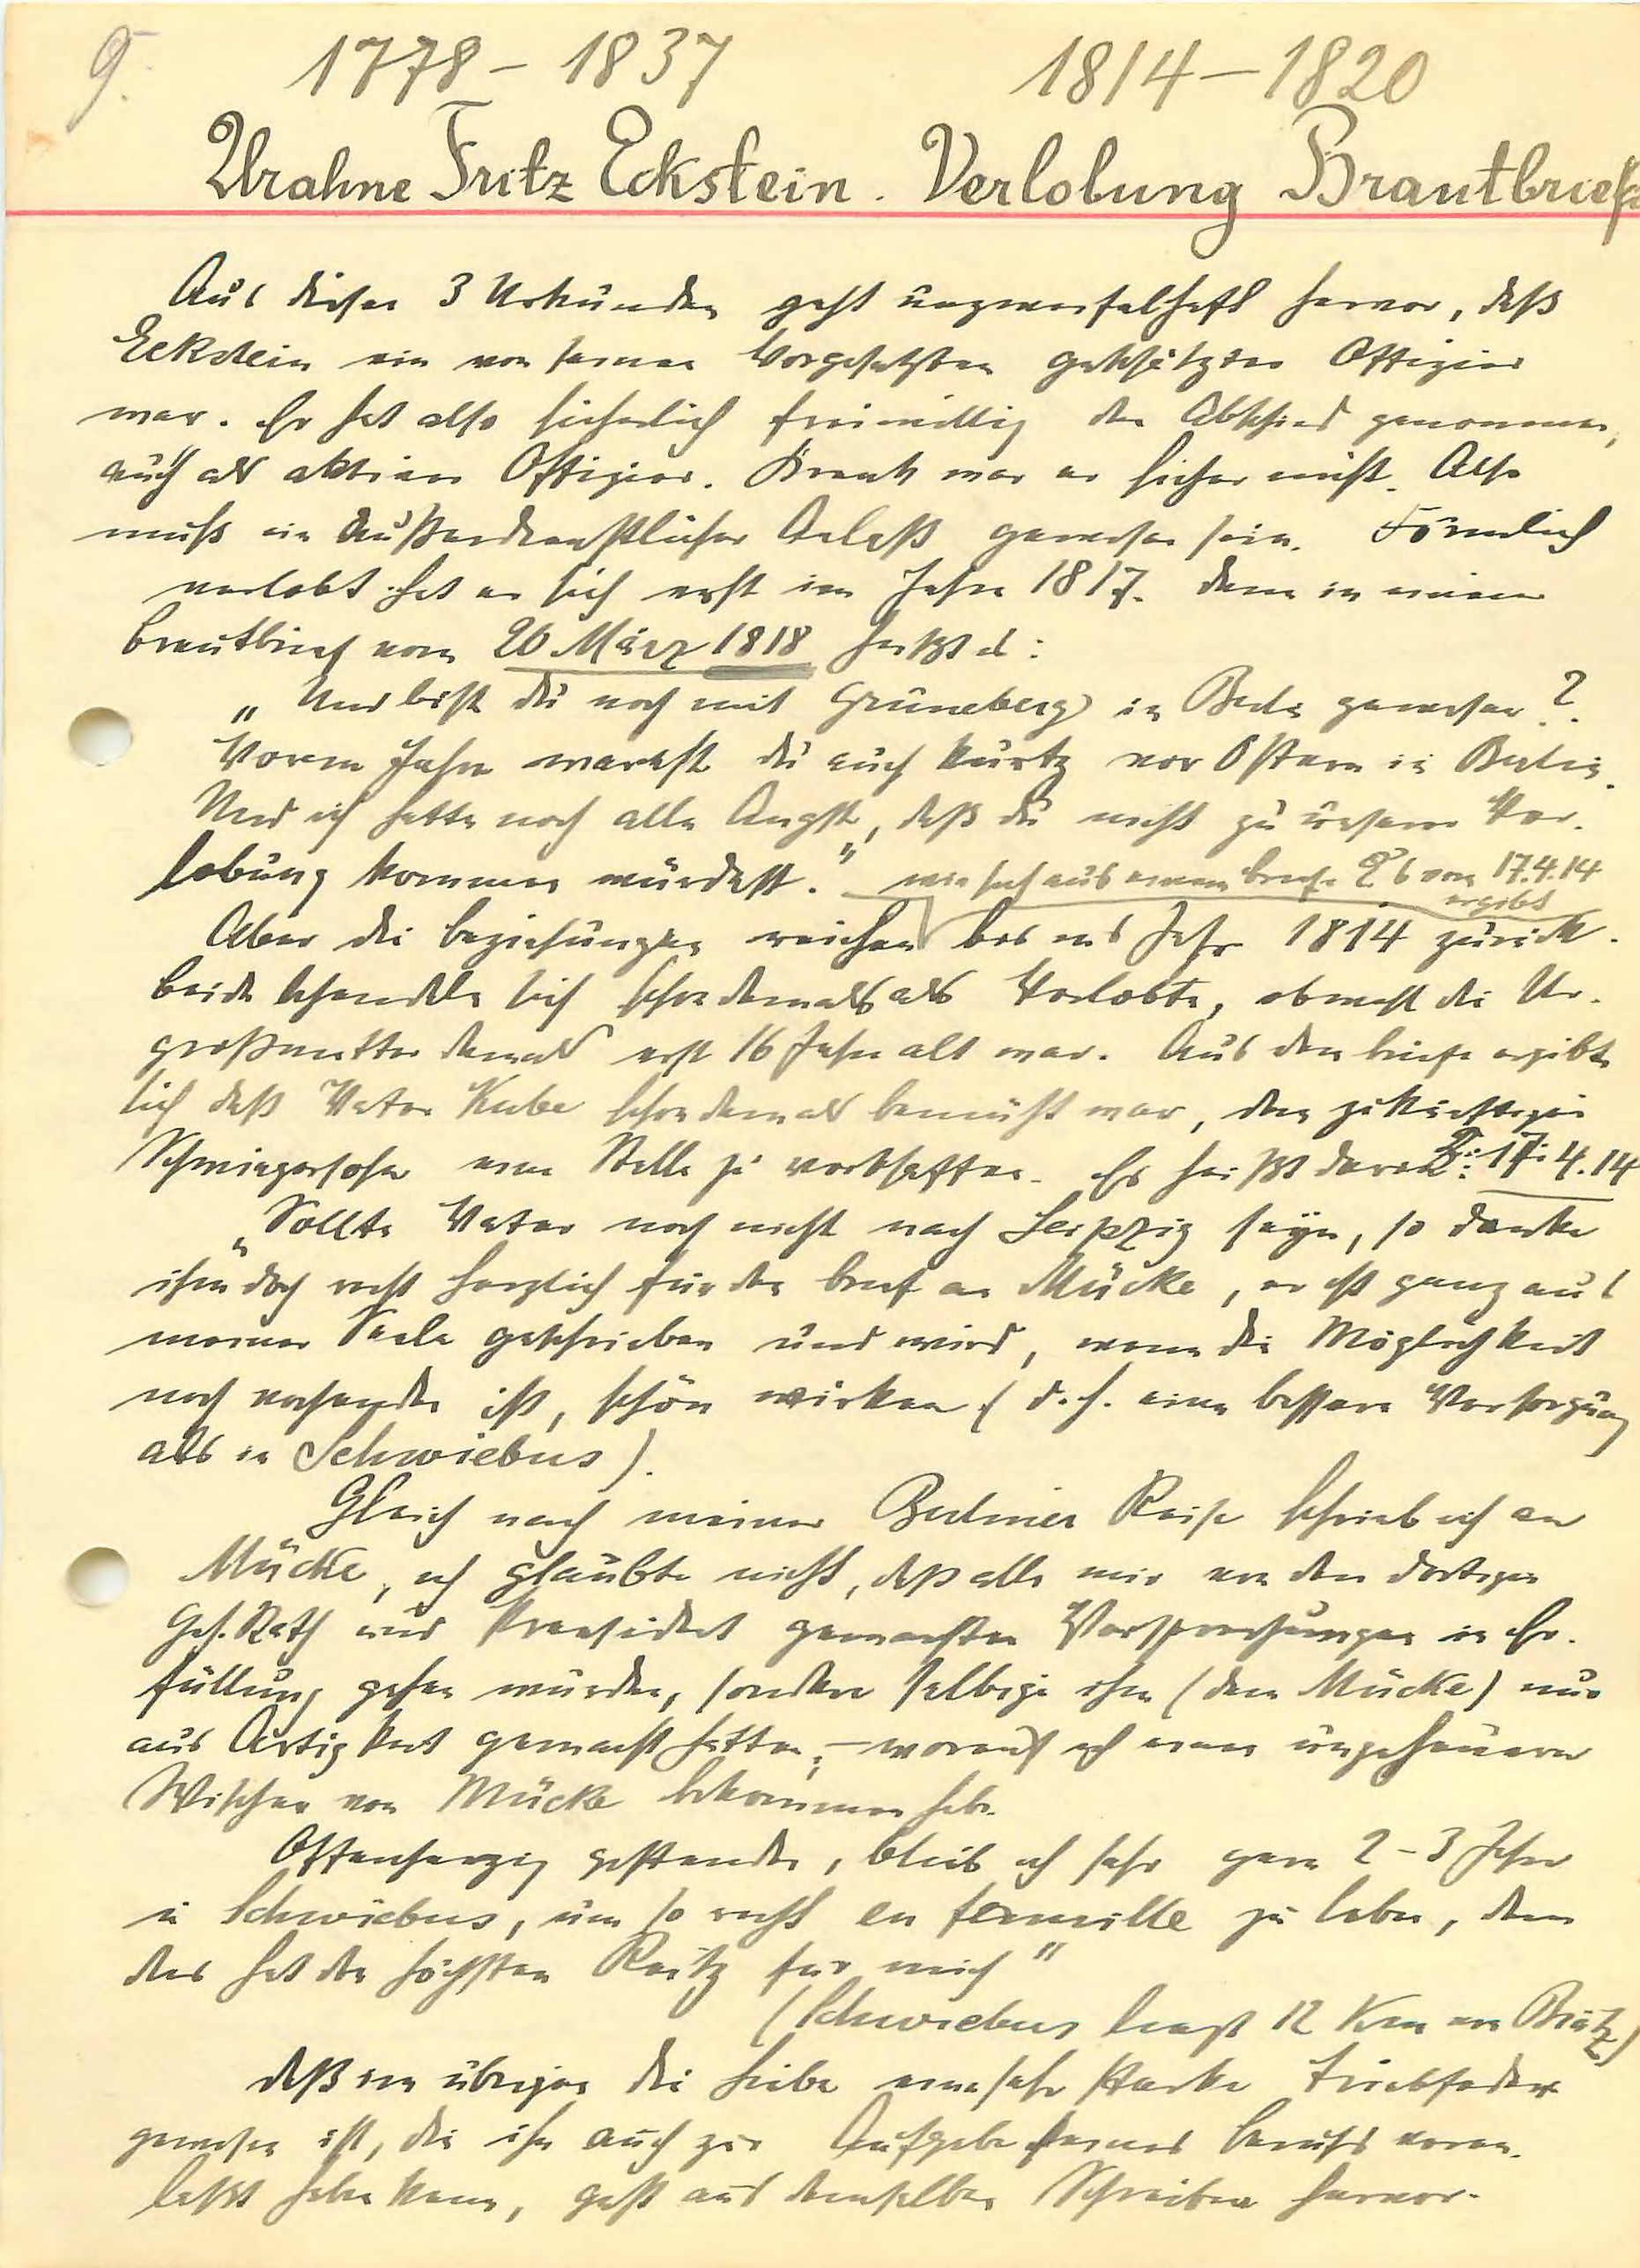 9.
1778 – 1837 1814 – 1820
Urahne Fritz Eckstein. Verlobung Brautbriefe
Aus diesen 3 Urkunden geht unzweifelhaft hervor, daß
Eckstein ein von seinen Vorgesetzten geschätzter Offizier
war. Er hat also sicherlich freiwillig den Abschied genommen,
auch als aktiver Offizier. Krank war er sicher nicht. Also
muß ein außerdienstlicher Anlaß gewesen sein. Förmlich
verlobt hat er sich erst im Jahre 1817. Denn in einem
Brautbrief vom 20 März 1818 heißt es:
„Und bist du noch mit Grüneberg in Berlin gewesen?
Vorm Jahre warest du auch kurtz vor Ostern in Berlin.
Und ich hatte noch alle Angst, daß du nicht zu unserer Ver-
lobung kommen würdest.“ wie sich aus einem Briefe vom 17.4.14
ergibt
Aber die Beziehungen reichen bis ins Jahr 1814 zurück.
Beide behandeln sich schon damals als Verlobte, obwohl die Ur-
großmutter damals erst 16 Jahre alt war. Aus dem Briefe ergibt
sich daß Vater Kube schon damals bemüht war, dem zukünftigen
Schwiegersohn eine Stelle zu verschaffen. Es heißt darin: 17.4.14
„Sollte Vater noch nicht nach Leipzig seyn, so danke
ihm doch recht herzlich für den Brief an Mücke, er ist ganz aus
meiner Seele geschrieben und wird, wenn die Möglichkeit
noch vorhanden ist, schön wirken (d.h. eine bessere Versorgung
als in Schwiebus).
Gleich nach meiner Berliner Reise schrieb ich an
Mücke, ich glaubte nicht, daß alle mir von den dortigen
Geh. Rath und Praesident gemachten Versprechungen in Er-
füllung gehen würden, sondern selbige ihm (dem Mücke) nur
aus Artigkeit gemacht hätten; – worauf ich einen ungeheuern
Wischer von Mücke bekommen habe.
Offenherzig gestanden, bleib ich sehr gern 2 – 3 Jahre
in Schwiebus, um so recht en famille zu leben, denn
das hat den höchsten Reitz für mich“
(Schwiebus liegt 12 Km von Brätz)
Daß im übrigen die Liebe eine sehr starke Triebfeder
gewesen ist, die ihn auch zur Aufgabe seines Berufs veran-
laßt haben kann, geht aus demselben Schreiben hervor.